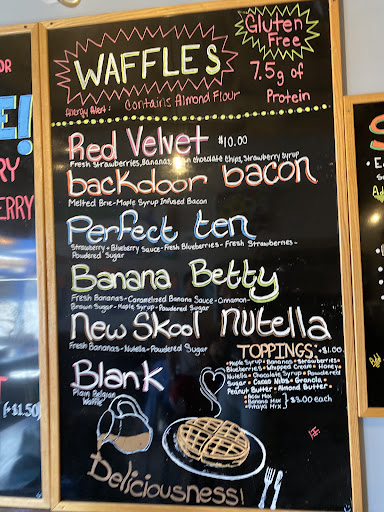 OR
E!
RY
ERRY
T
[+$1.50]
WAFFLES
Gluten
Free
7.5g of
Protein
Allergy Alert: Contains Almond Flour
Red Velvet $10.00
Fresh Strawberries, Bananas, chocolate Chips, Strawberry Syrup
backdoor bacon
Melted Brie-Maple Syrup Infused Bacon
Perfect ten
Strawberry + Blueberry Sauce-Fresh Blueberries- Fresh Strawberries-
Powdered Sugar
Banana Betty
Fresh Bananas-Caramelized Banana Sauce-Cinnamon-
Brown Sugar-Maple Syrup-Powdered Sugar
New Skool Nutella
Fresh Bananas-Nutella-Powdered Sugar
TOPPINGS: +$1.00
•Maple Syrup •Bananas •Strawberries•
Blueberries •Whipped Cream •Honey•
Nutella • Chocolate Syrup • Powdered
Sugar • Cacao Nibs • Granola •
Peanut Butter • Almond Butter •
• Acai Mix
• Banana Mix
• Pitaya Mix
} $3.00 each
Blank
Plain Belgian
Waffle
Deliciousness!
S